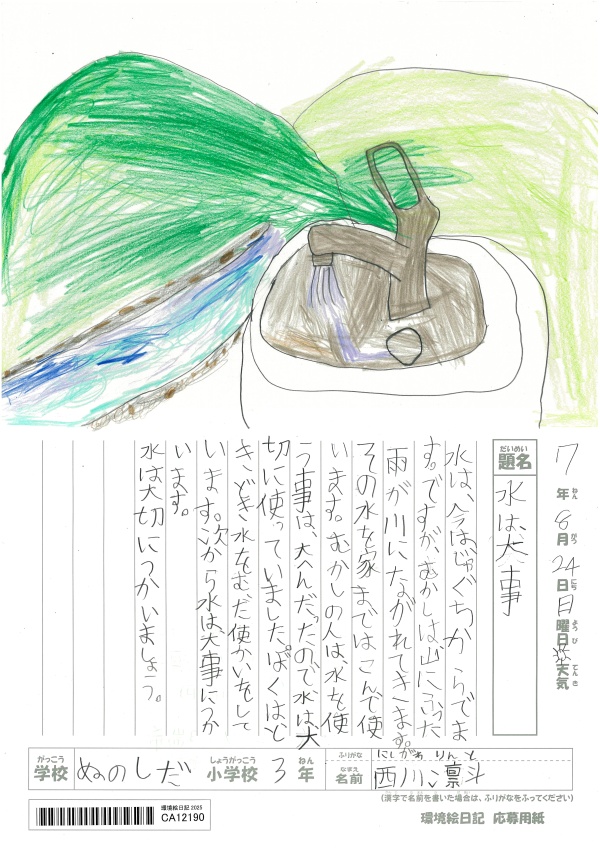 7年8月24日日曜日 天気
ねん がつ にち ようび てんき
だいめい
題名 水は、大事
水は、今はじゃぐちからでま
す。ですが、むかしは、山にふった
雨が川にながれてきます。
その水を家まではこんで使
います。むかしの人は、水を使
う事は、大へんだったので水は、大
切に使っていました。ぼくは、と
きどき水をむだ使かいをして
います。次から水は、大事につか
います。
水は大切につかいましょう。
がっこう しょうがっこう ねん ふりがな にしがわ りんと
学校 ぬのしだ 小学校 3年 なまえ 名前 西川 凛斗
(漢字で名前を書いた場合は、ふりがなをふってください)
環境絵日記 2025
CA12190
環境絵日記 応募用紙